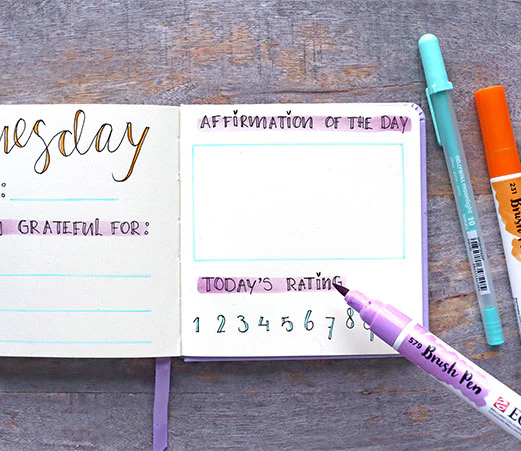 nesday
:
GRATEFUL FOR:
AFFIRMATION OF THE DAY
TODAY'S RATING
1 2 3 4 5 6 7 8
579 Brush Pen
EC
231 Brush
10